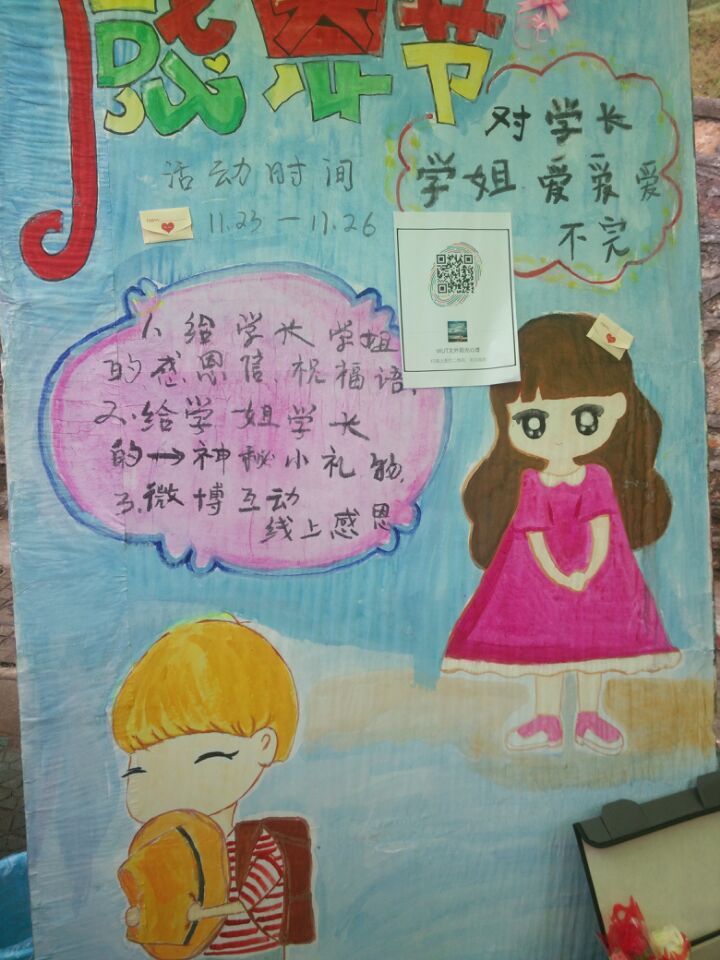 感恩节
对学长
学姐爱爱爱
不完
活动时间
11.23—11.26
1、给学长学姐
的感恩信、祝福语、
2、给学姐学长
的→神秘小礼物、
3、微博互动
线上感恩